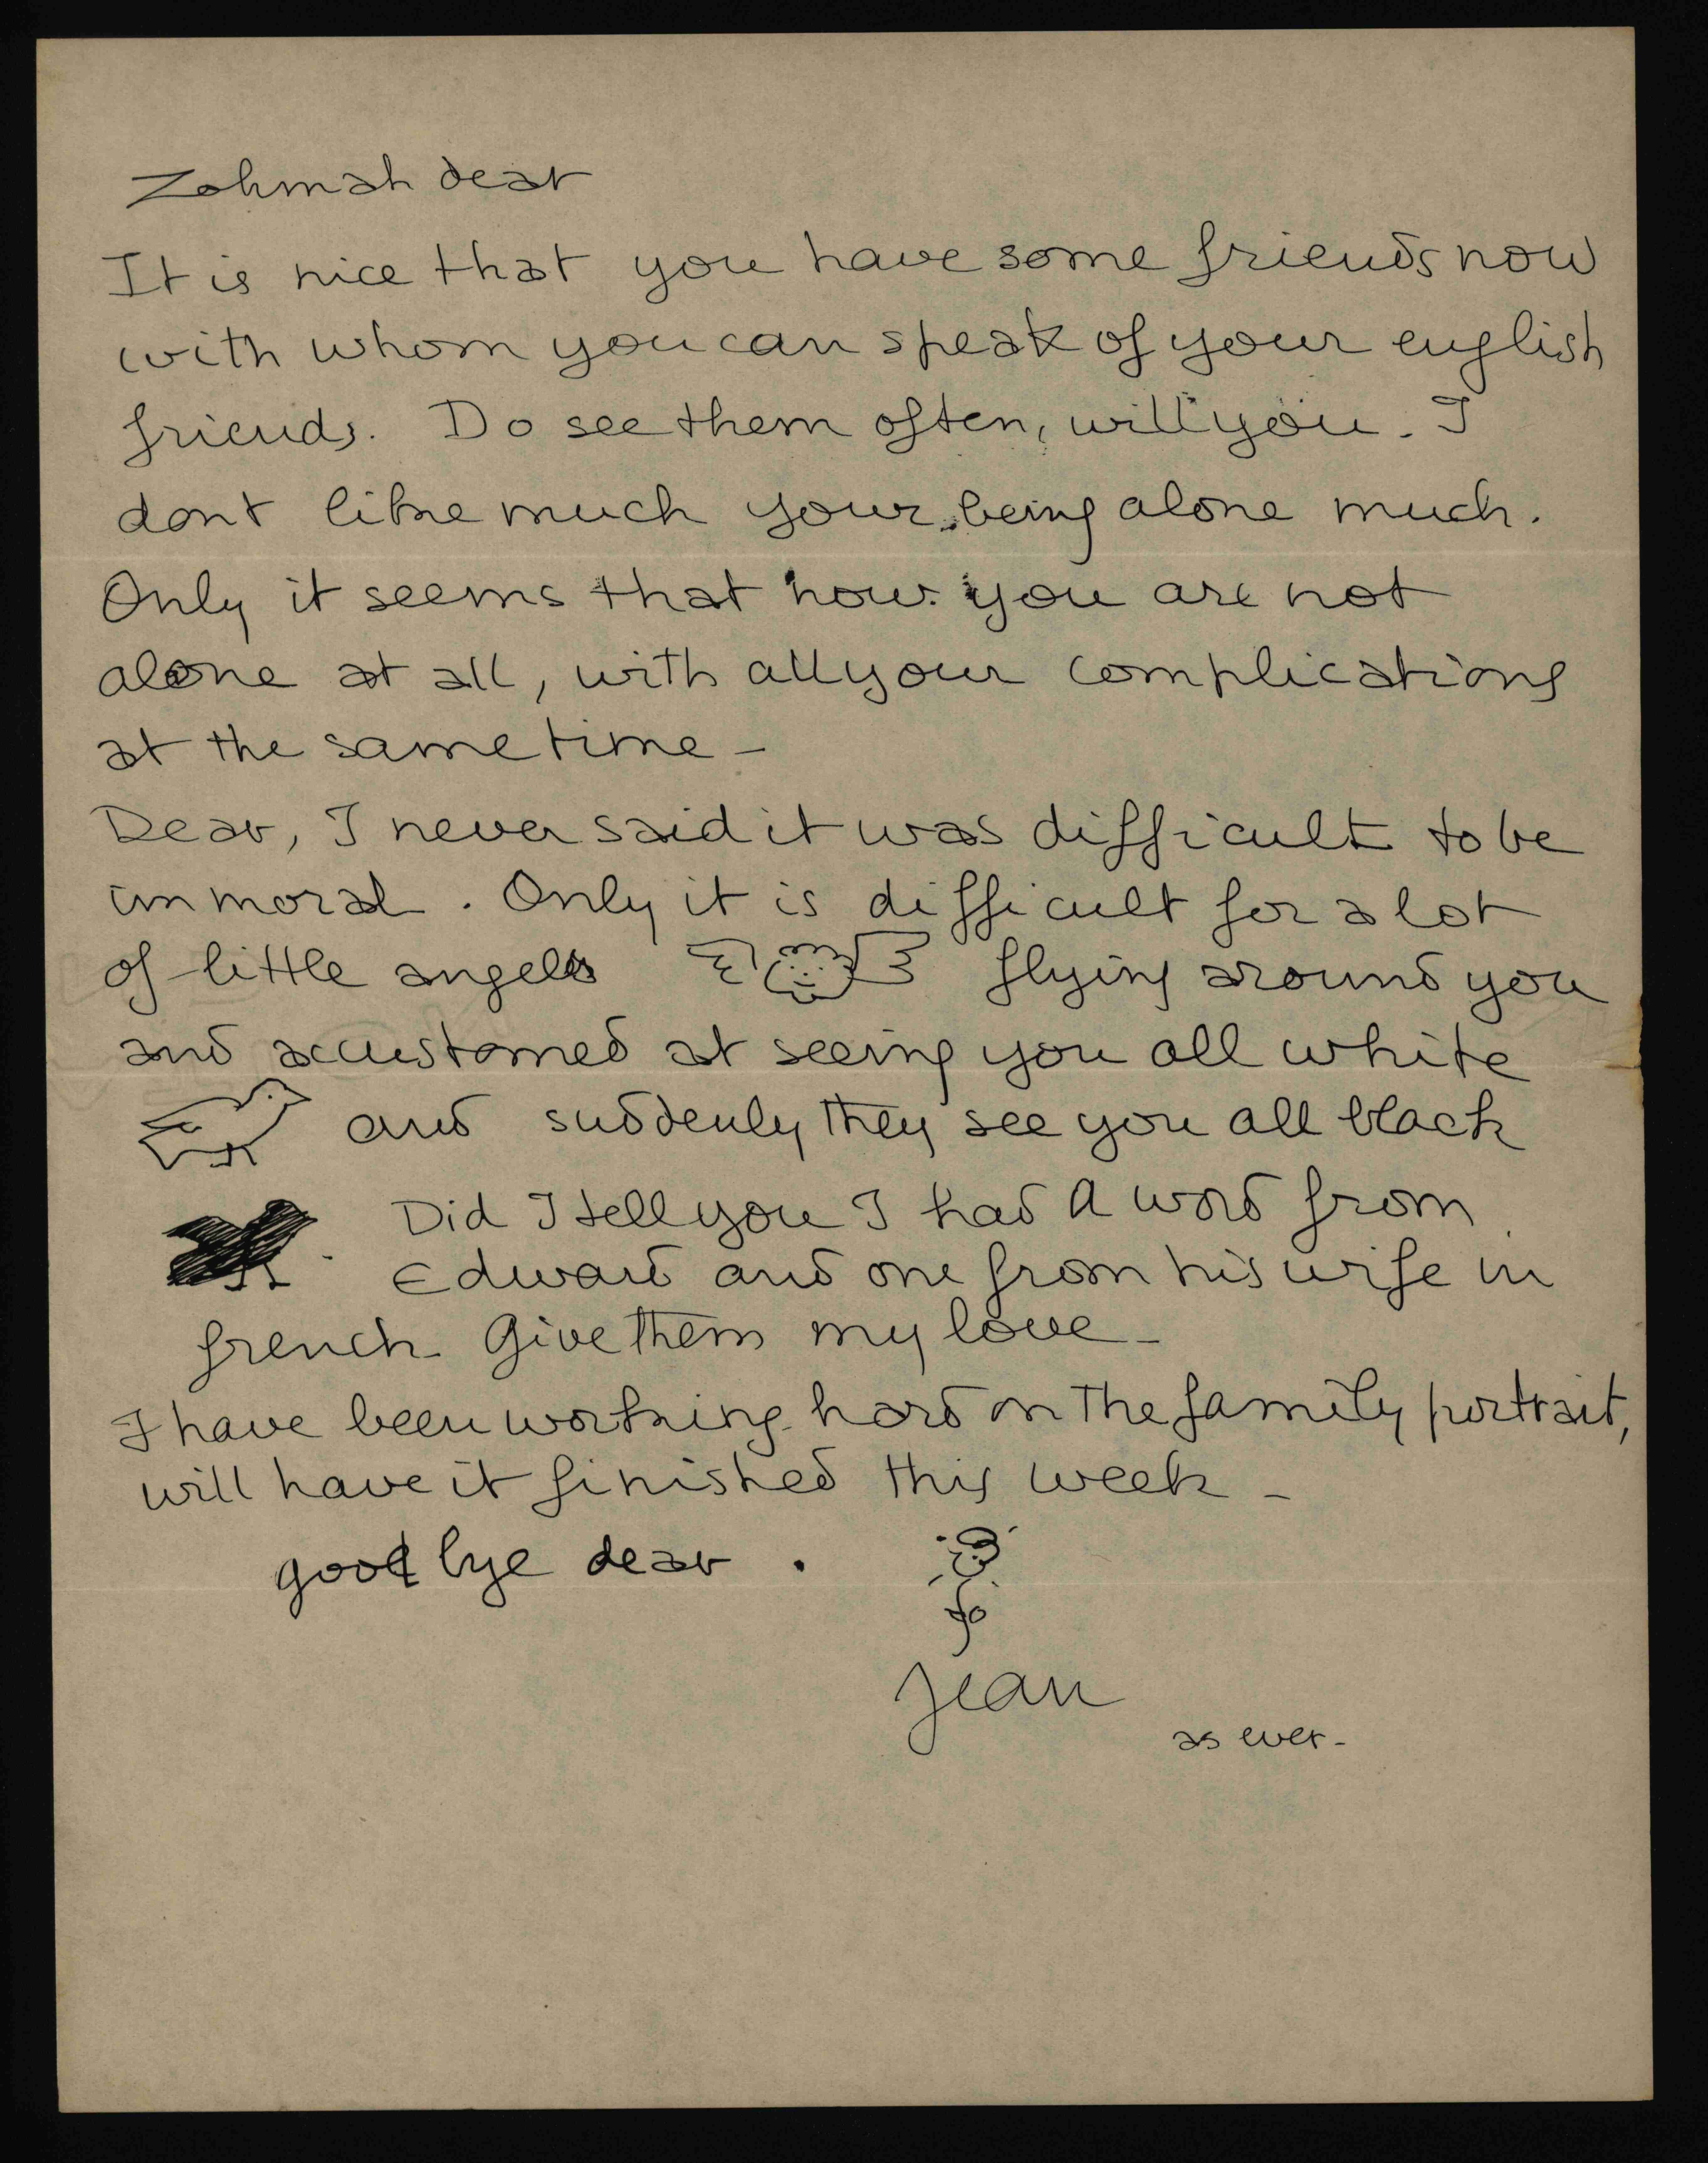 Zohmah dear
It is nice that you have some friends now
with whom you can speak of your english
friends. Do see them often, will you. I
dont like much your being alone much.
Only it seems that now you are not
alone at all, with all your complications
at the same time -
Dear, I never said it was difficult to be
immoral. Only it is difficult for a lot
of little angels flying around you
and accustomed at seeing you all white
and suddenly they see you all black
. Did I tell you I had a word from
Edward and one from his wife in
french. Give them my love -
I have been working hard on the family portrait,
will have it finished this week -
good bye dear .
Jean
as ever -